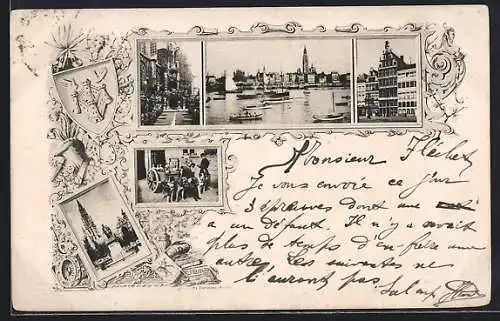 Monsieur Fléchet
Je vous envoie ce jour
3 épreuves dont une
a un défaut. Il n'y avait
plus de temps d'en faire une
autre, les suivantes ne
l'auront pas